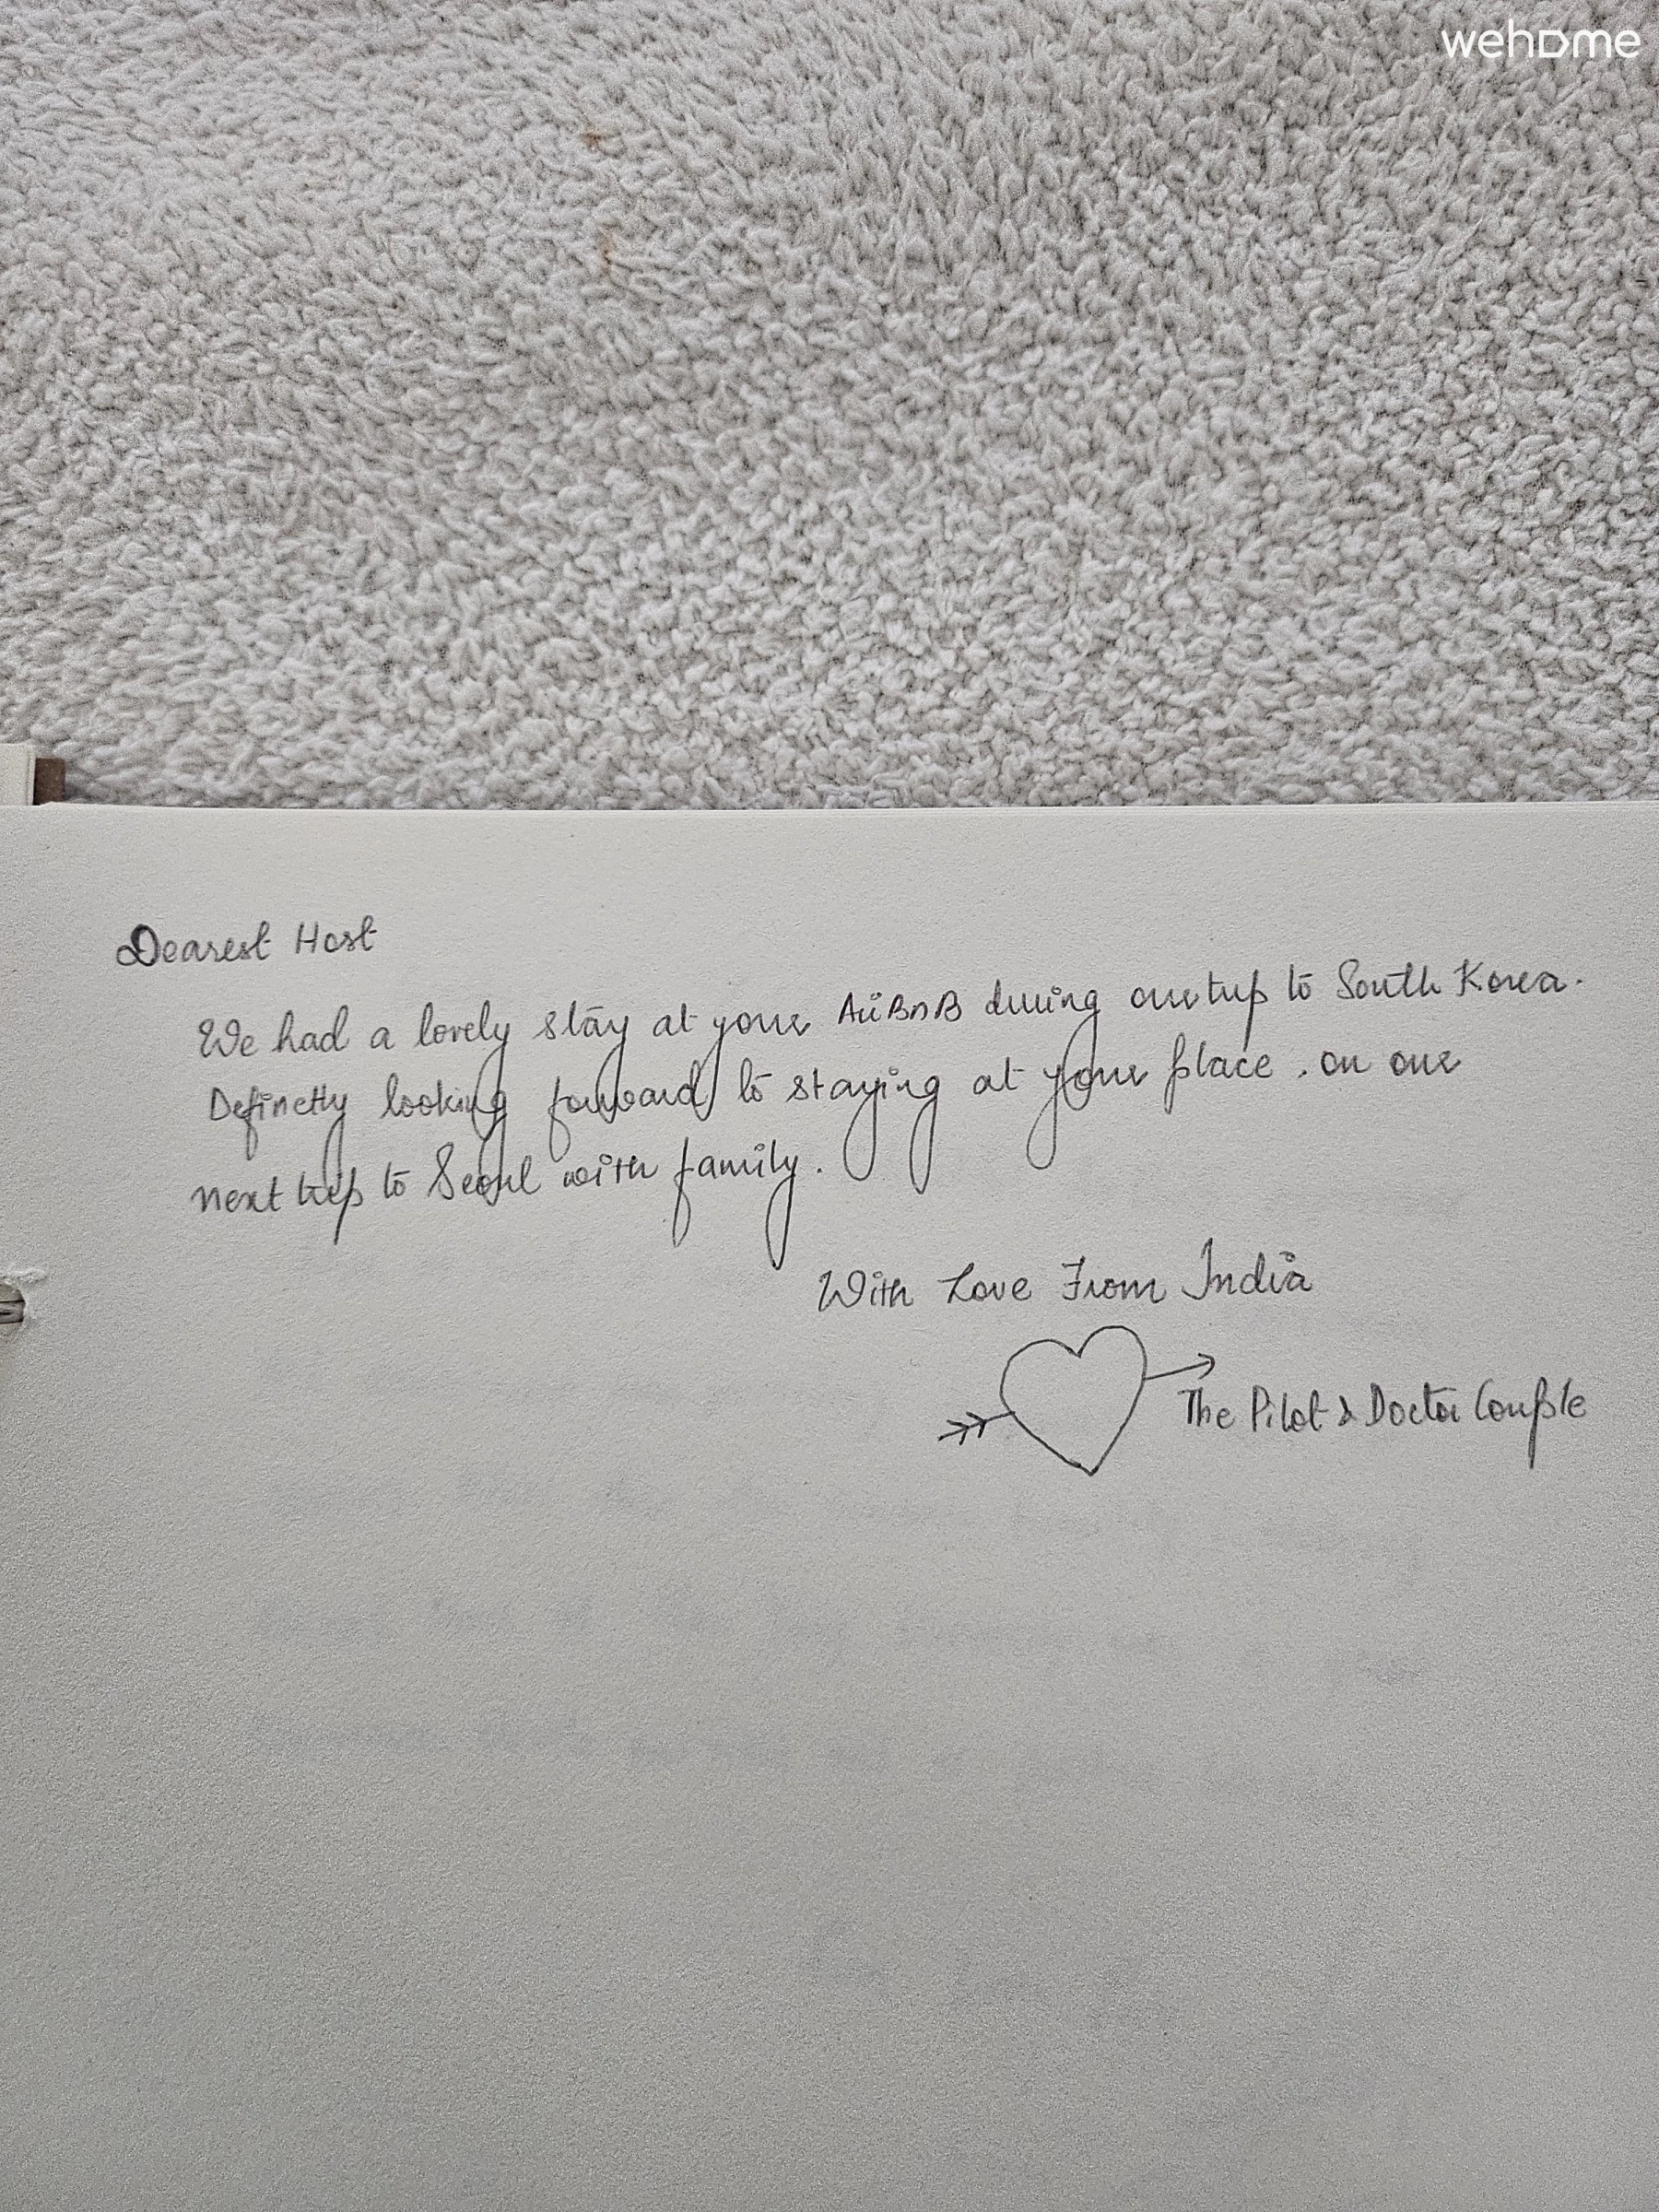 wehome
Dearest Host
We had a lovely stay at your AirBnB during our trip to South Korea.
Definetly looking forward to staying at your place, on our
next trip to Seoul with family.
With Love From India
The Pilot & Doctor Couple